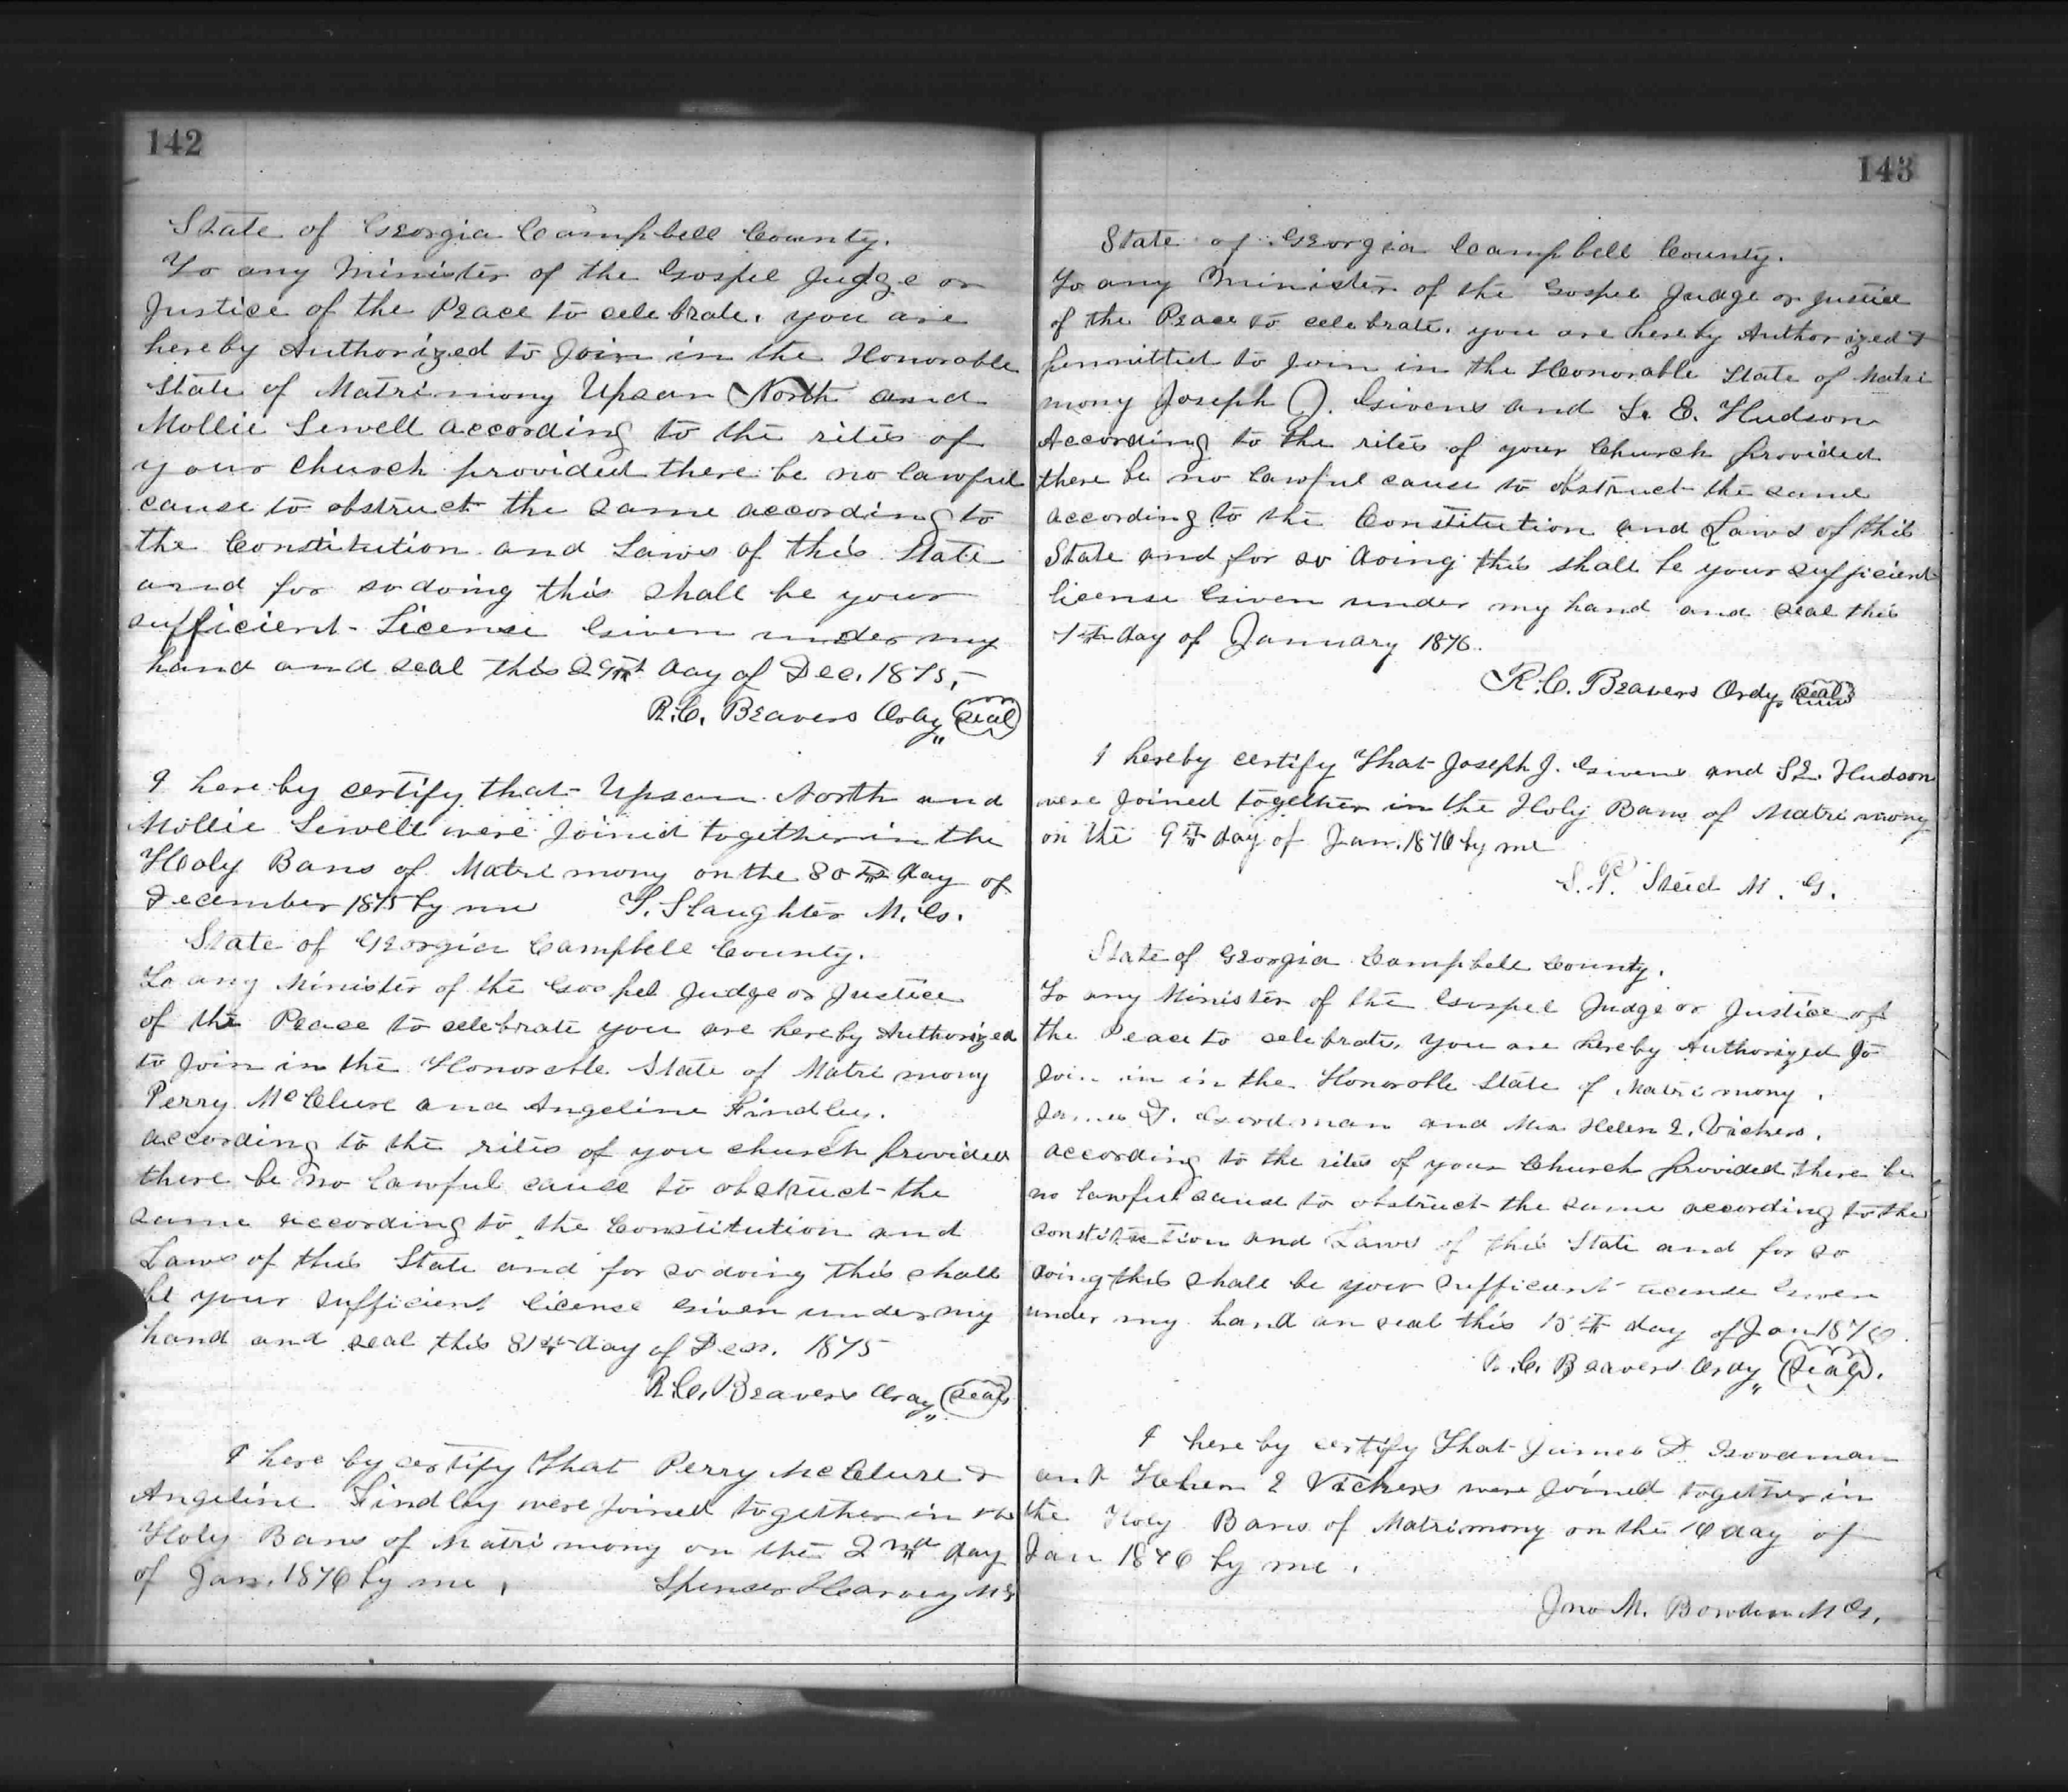 142
State of Georgia Campbell County.
To any Minister of the Gospel Judge or
Justice of the Peace to celebrate. you are
hereby Authorized to Join in the Honorable
State of Matrimony Upson North and
Mollie Sewell according to the rites of
your church provided there be no lawful
cause to obstruct the same according to
the Constitution and Laws of this State
and for so doing this shall be your
sufficient License Given under my
hand and seal this 29th day of Dec. 1875,
R. C. Beavers Ordy (seal)
I here by certify that Upson North and
Mollie Sewell were Joined together in the
Holy Bans of Matrimony on the 30th day of
December 1875 by me T. Slaughter M. G.
State of Georgia Campbell County.
To any Minister of the Gospel Judge or Justice
of the Peace to celebrate you are hereby Authorized
to Join in the Honorable State of Matrimony
Perry McClure and Angeline Findley.
according to the rites of you church provided
there be no lawful cause to obstruct the
same according to the Constitution and
Laws of this State and for so doing this shall
be your sufficient license Given under my
hand and seal this 31st day of Dec. 1875
R. C. Beavers Ordy (seal)
I here by certify that Perry McClure &
Angeline Findley were Joined together in the
Holy Bans of Matrimony on the 2nd day
of Jan. 1876 by me, Spenser Harvey MG
143
State of Georgia Campbell County.
To any Minister of the Gospel Judge or Justice
of the Peace to celebrate. you are hereby Authorized &
permitted to Join in the Honorable State of Matri
mony Joseph J. Givens and S. E. Hudson
According to the rites of your Church provided
there be no lawful cause to obstruct the same
according to the Constitution and Laws of this
State and for so doing this shall be your sufficient
license Given under my hand and seal this
day of January 1876.
R. C. Beavers Ordy (seal)
I hereby certify That Joseph J. Givens and S E. Hudson
were Joined together in the Holy Bans of Matrimony
on the 9th day of Jan. 1876 by me
S. P. Steed M. G.
State of Georgia Campbell County.
To any Minister of the Gospel Judge or Justice of
the Peace to celebrate, you are hereby Authorized to
Join in in the Honorable State of Matrimony.
James D. Goodman and Mrs Helen E. Vickers.
according to the rites of your Church provided there be
no lawful cause to obstruct the same according to the
constitution and Laws of this State and for so
doing this shall be your sufficent license Given
under my hand an seal this 15th day of Jan 1876.
R. C. Beavers Ordy (seal).
I here by certify That James D. Goodman
and Helen E Vickers were Joined together in
the Holy Bans of Matrimony on the 16 day of
Jan 1876 by me.
Jno M. Bowden M G.